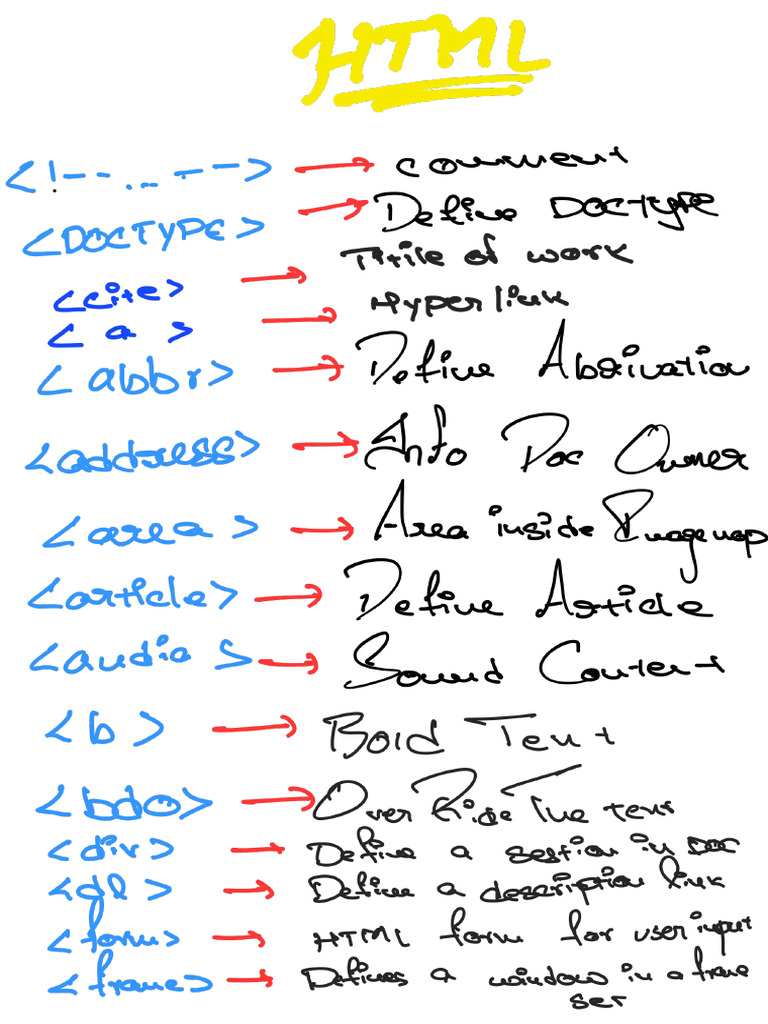 HTML
<!--...--> → comment
<DOCTYPE> → Define DOCTYPE
<cite> → Title of work
<a> → Hyperlink
<abbr> → Define Abbrivation
<address> → Info Doc Owner
<area> → Area inside Imagemap
<article> → Define Article
<audio> → Sound Content
<b> → Bold Text
<bdo> → OverRide The text
<div> → Define a section in DOC
<dl> → Define a description link
<form> → HTML form for user input
<frame> → Defines a window in a frame
set